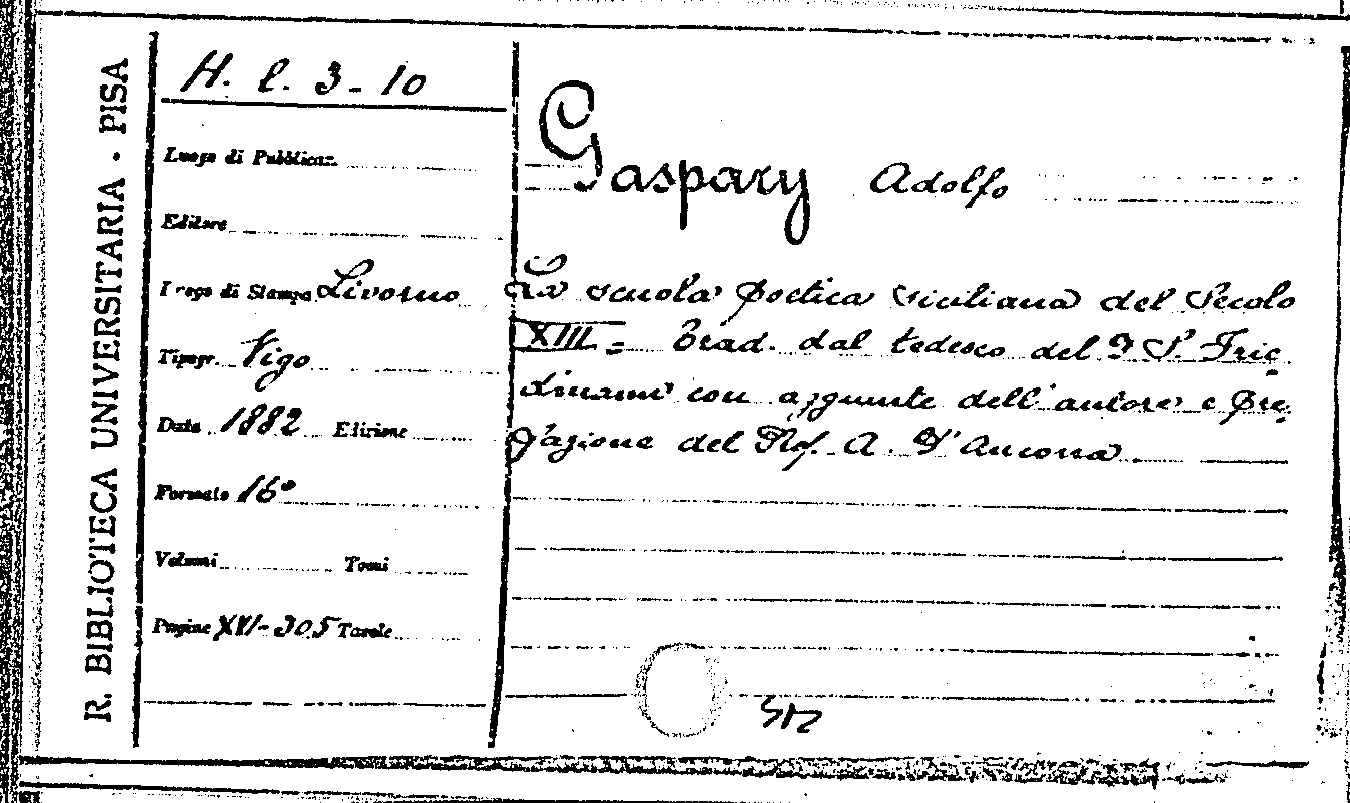 R. BIBLIOTECA UNIVERSITARIA - PISA
H. l. 3 - 10
Luogo di Pubblicaz.
Editore
Luogo di Stampa Livorno
Tipogr. Vigo
Data 1882 Edizione
Formato 16°
Volumi Tomi
Pagine XVI-305 Tavole
Gaspary Adolfo
La scuola poetica siciliana del Secolo
XIII = Trad. dal tedesco del D S. Frie
dmann con aggiunte dell'autore e pre
fazione del Prof. A. D'Ancona.